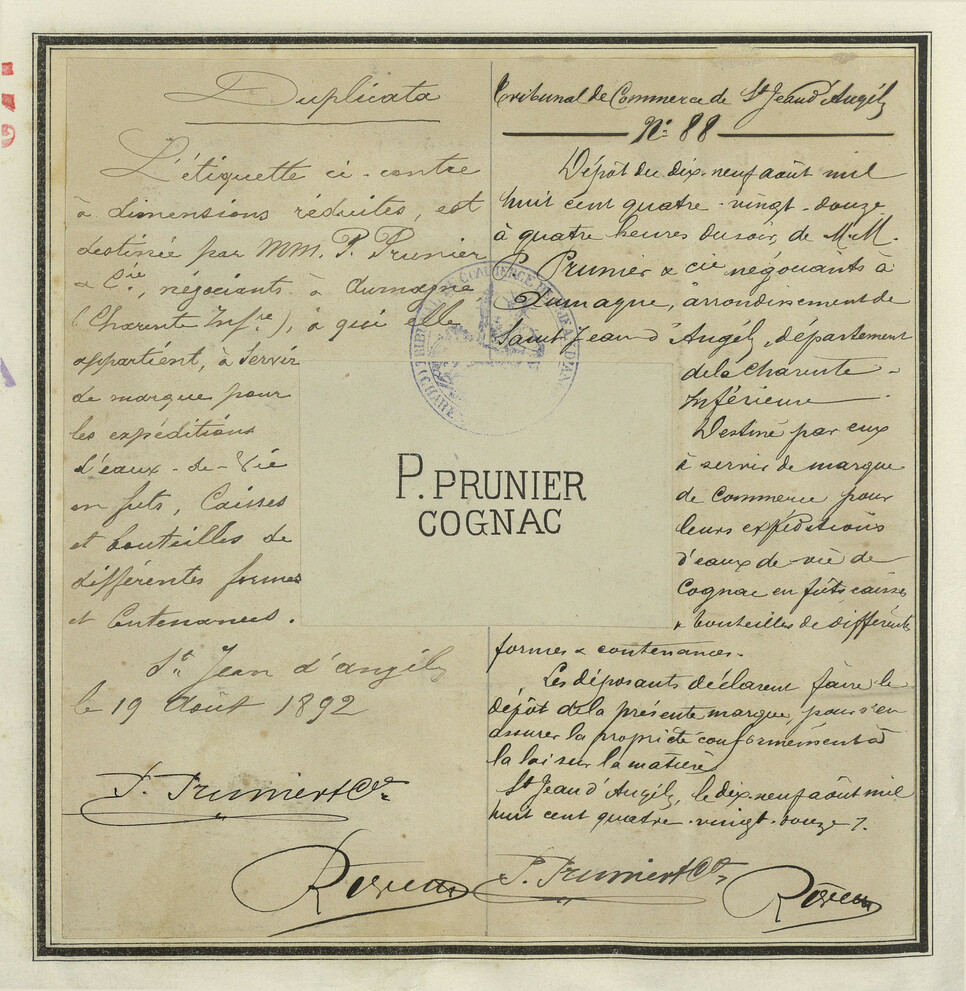 Duplicata
L'étiquette ci-contre
à dimensions réduites, est
destinée par MM. P. Prunier
& Cie, négociants à Aumagne
(Charente Infre), à qui elle
appartient, à servir
de marque pour
les expéditions
d'eaux-de-Vie
en futs, Caisses
et bouteilles de
différentes formes
et Contenances.
St Jean d'angély
le 19 Août 1892
P. Prunier & Cie
Tribunal de Commerce de St Jean d'Angély
No 88
Dépôt du dix-neuf août mil
huit cent quatre-vingt-douze
à quatre heures du soir, de M.M.
P. Prunier & cie négociants à
Aumagne, arrondissement de
Saint Jean d'Angély, département
de la Charente-
Inférieure.
Destiné par eux
à servir de marque
de Commerce pour
leurs expéditions
d'eaux-de-vie de
Cognac en fûts caisses
& bouteilles de différentes
formes & contenances.
Les déposants déclarent faire le
dépôt de la présente marque, pour s'en
assurer la propriété conformément à
la loi sur la matière
St Jean d'Angély, le dix-neuf août mil
huit cent quatre-vingt-douze.
P. Prunier & Cie
P. PRUNIER
COGNAC
TRIBUNAL DE COMMERCE DE ST JEAN D'ANG
(CHARE